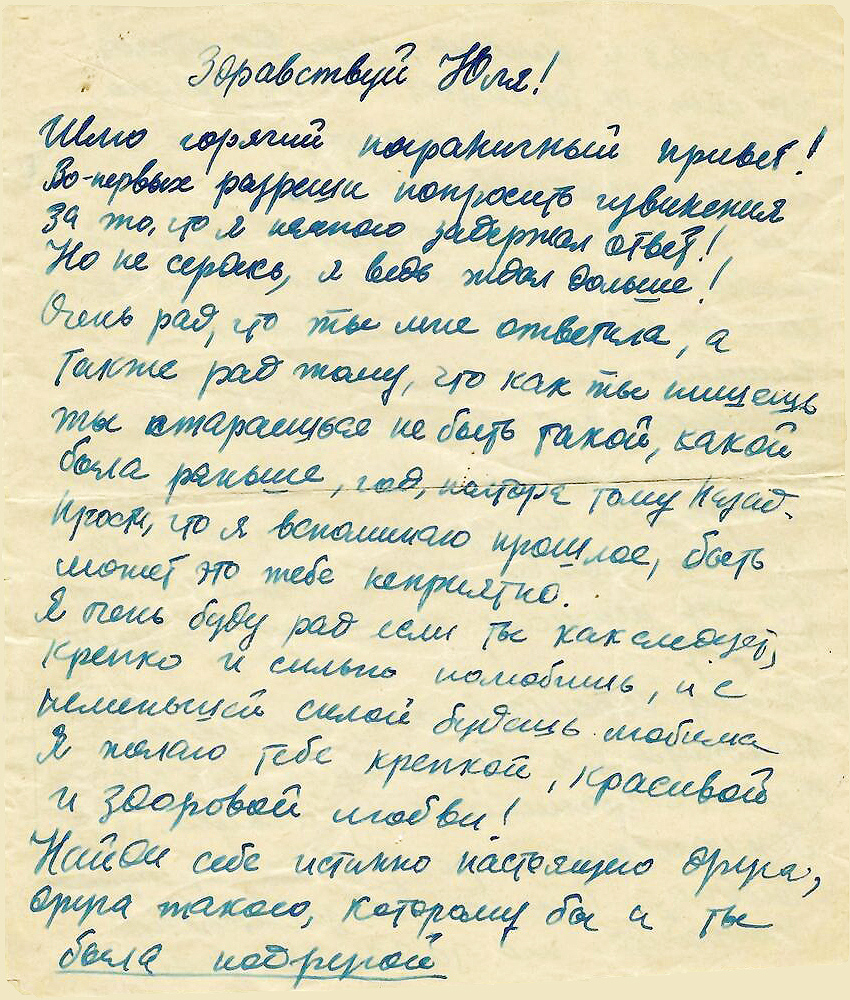 Здравствуй Юля!
Шлю горячий пограничный привет!
Во-первых разреши попросить извинения
За то, что я немного задержал ответ!
Но не сердись, я ведь ждал дольше!
Очень рад, что ты мне ответила, а
также рад тому, что как ты пишешь
ты стараешься не быть такой, какой
была раньше, год, полтора тому назад.
Прости, что я вспоминаю прошлое, быть
может это тебе неприятно.
Я очень буду рад если ты как следует,
крепко и сильно полюбишь, и с
неменьшей силой будешь любима
Я желаю тебе крепкой, красивой
и здоровой любви!
Найди себе истинно настоящего друга,
друга такого, которому бы и ты
была подругой